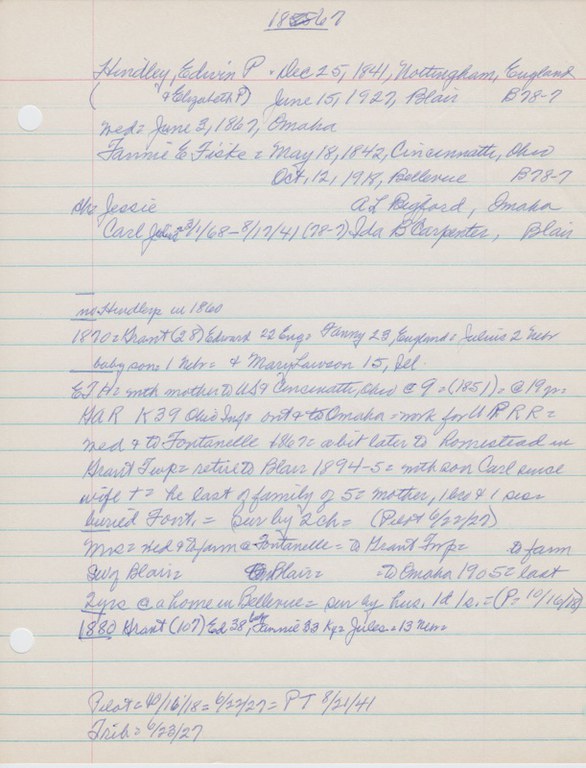 1867
Hindley, Edwin P. Dec 25, 1841, Nottingham, England
( & Elizabeth P) June 15, 1927, Blair B78-7
Med= June 3, 1867, Omaha
Fannie E Fiske = May 18, 1842, Cincinnatti, Ohio
Oct, 12, 1918, Bellevue B78-7
ch= Jessie A L Bigford, Omaha
Carl Jules 3/1/68-8/17/41 (78-7) Ida B Carpenter, Blair
no Hindleys in 1860
1870= Grant (28) Edward 22 Eng= Fanny 23, England= Julius 2 Nebr
baby son 1 Nebr= & Mary Lawson 15, Ill.
E J H= with mother to US & Cincinatti, Ohio @ 9= (1851)= @ 19 yr=
GAR K 39 Ohio Inf= out & to Omaha= work for U P R R=
Med & to Fontanelle 1867= a bit later to homestead in
Grant Twp= retire to Blair 1894-5= with son Carl since
wife += he last of family of 5= mother, 1 bro & 1 sis=
buried Font.= sur by 2 ch= (Pilot 6/22/27)
Mrs= Med & to farm @ Fontanelle= to Grant Twp= to farm
Blair= Blair= =to Omaha 1905= last
2 yrs @ a home in Bellevue= sur by hus. 1 d 1 s.= (P= 10/16/18)
1880 Grant (107) Ed 38, Fannie 33 Ky= Jules= 13 Neb=
Pilot= 10/16/18= 6/22/27= PT 8/21/41
Trib= 6/23/27